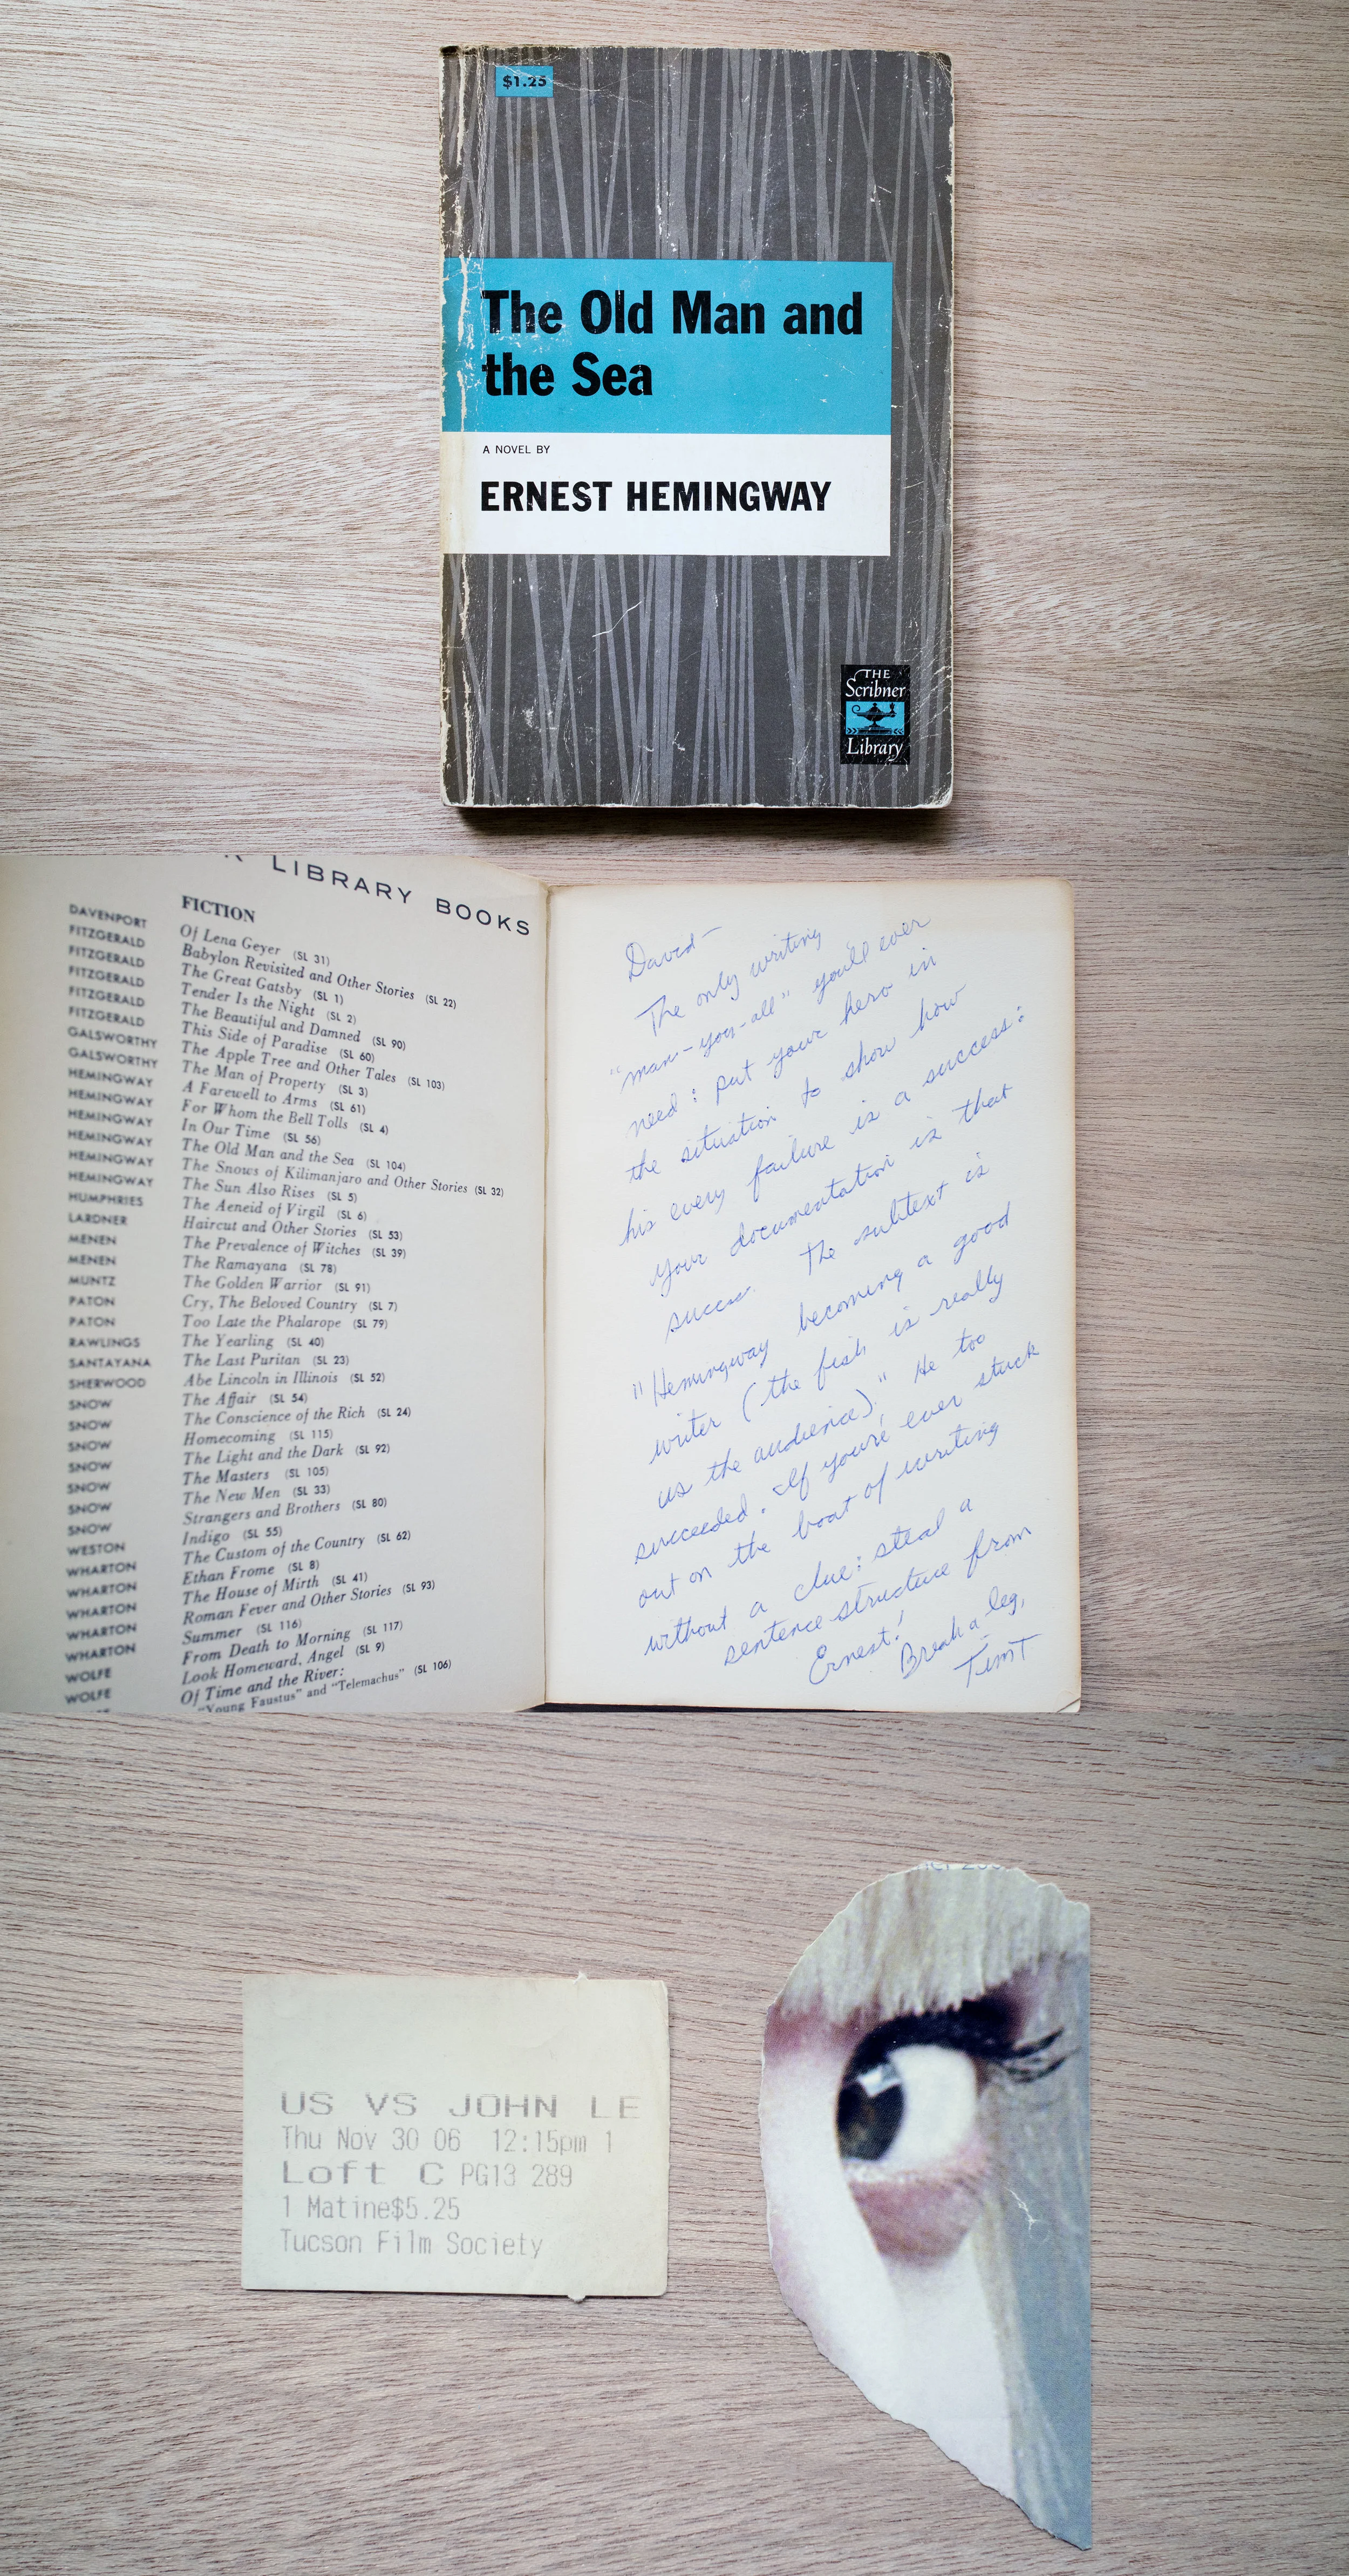 $1.25
The Old Man and
the Sea
A NOVEL BY
ERNEST HEMINGWAY
THE
Scribner
Library
LIBRARY BOOKS
FICTION
DAVENPORT Of Lena Geyer (SL 31)
FITZGERALD Babylon Revisited and Other Stories (SL 22)
FITZGERALD The Great Gatsby (SL 1)
FITZGERALD Tender Is the Night (SL 2)
FITZGERALD The Beautiful and Damned (SL 90)
FITZGERALD This Side of Paradise (SL 60)
GALSWORTHY The Apple Tree and Other Tales (SL 103)
GALSWORTHY The Man of Property (SL 3)
HEMINGWAY A Farewell to Arms (SL 61)
HEMINGWAY For Whom the Bell Tolls (SL 4)
HEMINGWAY In Our Time (SL 56)
HEMINGWAY The Old Man and the Sea (SL 104)
HEMINGWAY The Snows of Kilimanjaro and Other Stories (SL 32)
HEMINGWAY The Sun Also Rises (SL 5)
HUMPHRIES The Aeneid of Virgil (SL 6)
LARDNER Haircut and Other Stories (SL 53)
MENEN The Prevalence of Witches (SL 39)
MENEN The Ramayana (SL 78)
MUNTZ The Golden Warrior (SL 91)
PATON Cry, The Beloved Country (SL 7)
PATON Too Late the Phalarope (SL 79)
RAWLINGS The Yearling (SL 40)
SANTAYANA The Last Puritan (SL 23)
SHERWOOD Abe Lincoln in Illinois (SL 52)
SNOW The Affair (SL 54)
SNOW The Conscience of the Rich (SL 24)
SNOW Homecoming (SL 115)
SNOW The Light and the Dark (SL 92)
SNOW The Masters (SL 105)
SNOW The New Men (SL 33)
SNOW Strangers and Brothers (SL 80)
WESTON Indigo (SL 55)
WHARTON The Custom of the Country (SL 62)
WHARTON Ethan Frome (SL 8)
WHARTON The House of Mirth (SL 41)
WHARTON Roman Fever and Other Stories (SL 93)
WHARTON Summer (SL 116)
WOLFE From Death to Morning (SL 117)
WOLFE Look Homeward, Angel (SL 9)
Of Time and the River:
"Young Faustus" and "Telemachus" (SL 106)
David—
The only writing
"man-you-all" you'll ever
need: put your hero in
the situation to show how
his every failure is a success:
your documentation is that
success. The subtext is
"Hemingway becoming a good
writer (the fish is really
us the audience)." He too
succeeded. If you're ever stuck
out on the boat of writing
without a clue: steal a
sentence structure from
Ernest!
Break a leg,
TimT
US VS JOHN LE
Thu Nov 30 06 12:15pm 1
Loft C PG13 289
1 Matine$5.25
Tucson Film Society